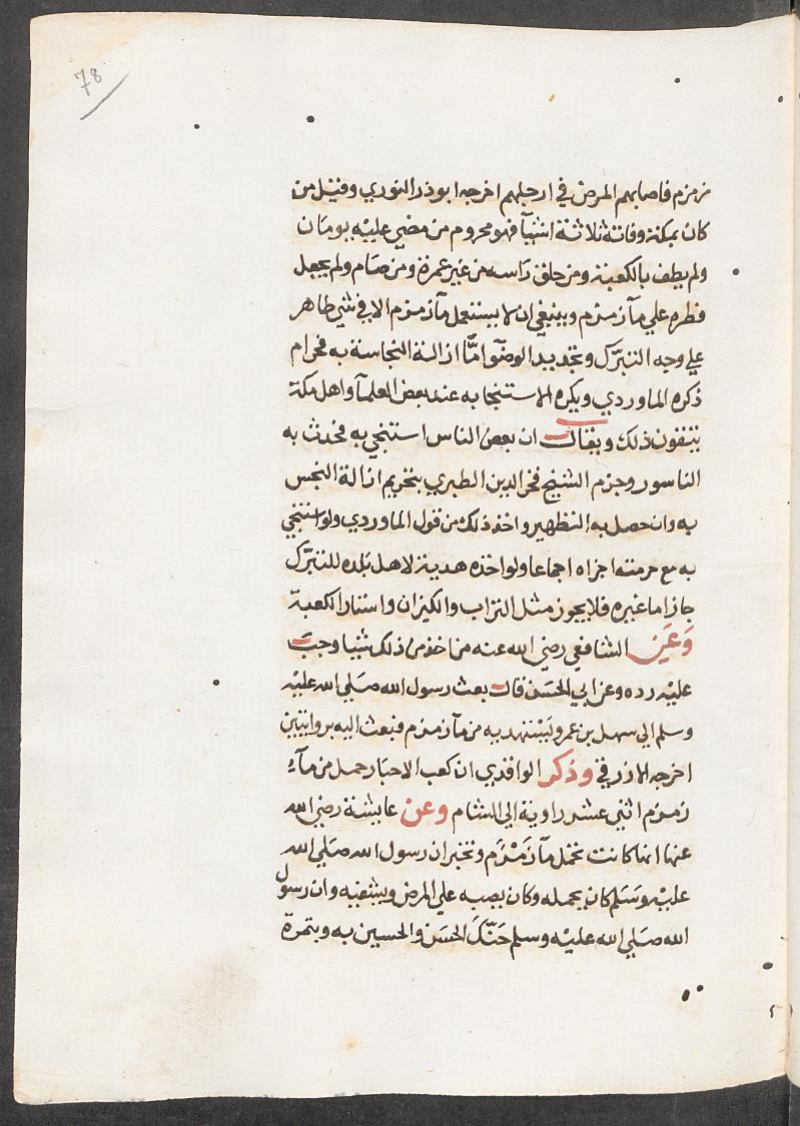 78
زمزم فاصابهم المرض في ارجلهم اخرجه ابو ذر النوري وقيل من
كان بمكة وفاتة ثلاثة اشيآ فهو محروم من مضي عليه يومان
ولم يطف بالكعبة ومن حلق راسه من غير عمرة ومن صام ولم يجعل
فطره علي مآ زمزم وينبغي ان لا يستعمل مآ زمزم الا في شي طاهر
علي وجه التبرّك وتجديد الوضوٓ امّا ازالة النجاسة به فحرام
ذكره الماوردي ويكره الاستنجا به عند بعض العلمآ واهل مكة
يتقون ذلك ويقال ان بعض الناس استنجي به فحدث به
الناسور وجزم الشيخ فخر الدين الطبري بتحريم ازالة النجس
به وان حصل به التطهير واخذ ذلك من قول الماوردي ولو استنجي
به مع حرمته اجزاه اجماعا ولو اخذه هدية لاهل بلده للتبرّك
جاز اما غيره فلا يجوز مثل التراب والكيزان واستار الكعبة
وَعَن الشافعي رضي الله عنه من اخذ من ذلك شيا وجب
عليه رده وعن ابي الحسَن قال بعث رسول الله صلي الله عليه
وسلم الي سهيل بن عمرو يَستهديه من مآ زمزم فبعث اليه براويتين
اخرجه الازرقي وذكر الواقدي ان كعب الاحبار حمل من مآء
زمزم اثني عشر راوية الي الشام وعن عايشة رضي الله
عنها انها كانت تحمل مآ زَمْزَم وتخبر ان رسول الله صلي الله
عليه وسَلم كان يحمله وكان يصبه علي المرض ويشفيه وان رسول
الله صلي الله عليه وسلم حَنّكَ الحسَن والحسين به وبتمرة